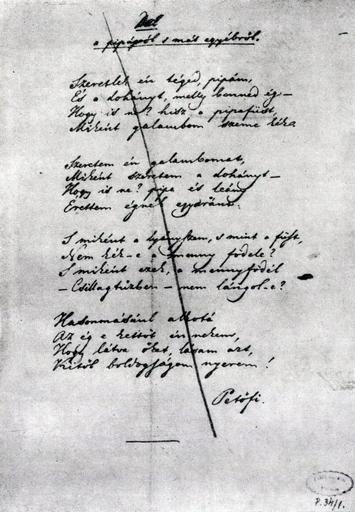 Dal
a pipáról s más egyébről.
Szeretlek én téged, pipám,
És a dohányt, melly benned ég –
Hogy is ne? hisz a pipafüst,
Miként galambom szeme kék.
Szeretem én galambomat,
Miként szeretem a dohányt –
Hogy is ne? pipa és leány
Érettem égnek egyaránt.
S miként a lyányszem, s mint a füst,
Nem kék-e a menny födele?
S miként ezek, a mennyfödél
– Csillagtűzben – nem lángol-e?
Hasonmásául alkotá
Az ég e kettőt én nekem,
Hogy látva őket, lássam azt,
Kitől boldogságom nyerem!
Petőfi.
P. 34/1.